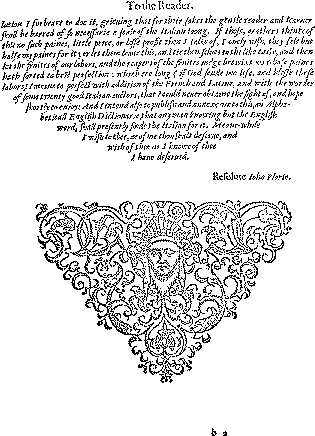 To the Reader.
lation I forbeare to doe it, grieving that for their sakes the gentle reader and learner
shall be barred of so necessarie a scale of the Italian toong. If these, or others thinke of
this no such paines, little price, or lesse profit than I talke of, I onely wish, they felt but
halfe my paines for it; or let them leave this, and tie themselves to the like taske, and then
let the fruites of our labors, and the reapers of the fruites iudge betwixt us whose paines
hath sorted to best perfection: which ere long (if God sende me life, and blesse these
labors) I meane to perfect with addition of the French and Latine, and with the wordes
of some twenty good Italian auctors, that I could never obtaine the sight of, and hope
shortly to enioy. And I intend also to publish and annexe unto this, an Alpha-
beticall English Dictionarie that any man knowing but the English
word, shall presently finde the Italian for it. Meane-while
I wish to thee, as of me thou shalt deserve, and
wish of thee as I knowe of thee
I have deserved.
Resolute Iohn Florio.
b 2